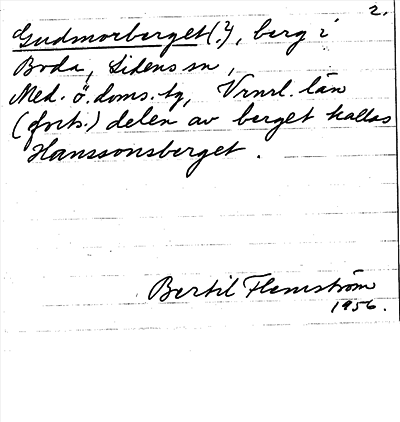 2.
Gudmorberget (?), berg i
Boda, Lidens sn,
Med. ö. doms. tg, Vrnrl. län
(forts.) delen av berget kallas
Hanssonsberget.
Bertil Flemström
1956.